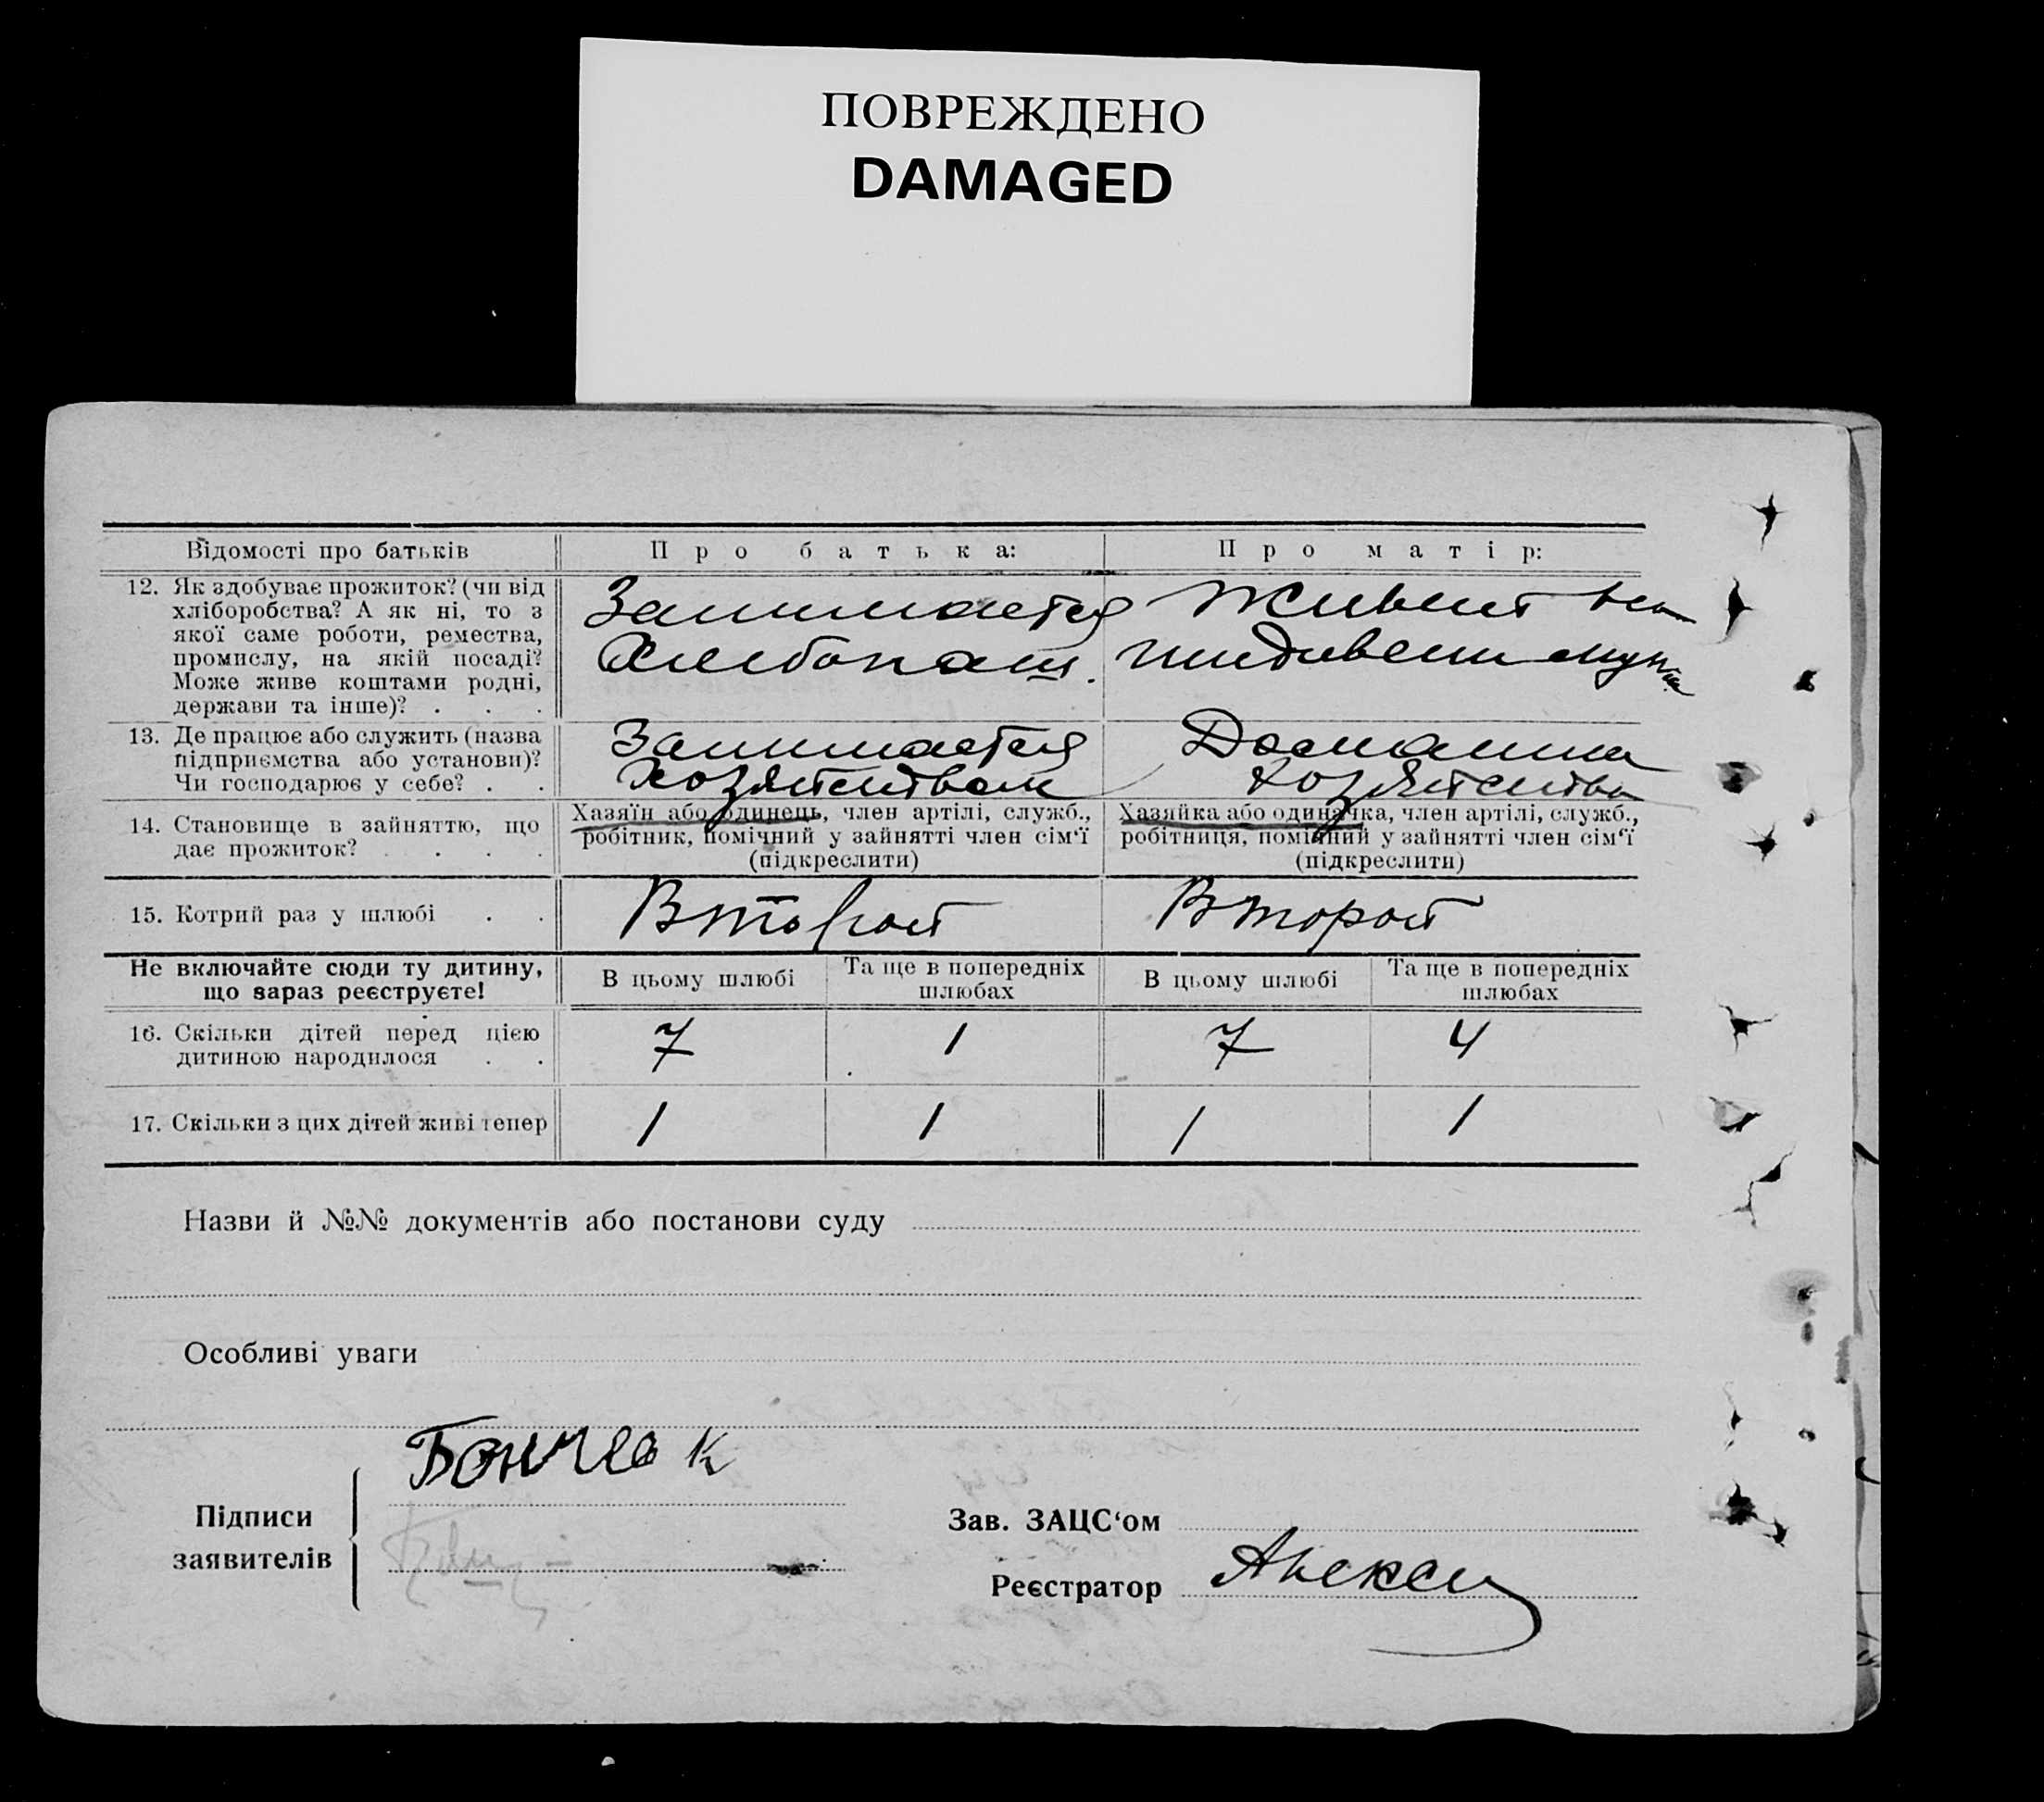 ПОВРЕЖДЕНО
DAMAGED
Відомості про батьків
Про батька:
Про матір:
12. Як здобуває прожиток? (чи від
хліборобства? А як ні, то з
якої саме роботи, ремества,
промислу, на якій посаді?
Може живе коштами родні,
держави та інше)? . . .
Занимается
Хлебопаш.
Живет на
иждивении мужа
13. Де працює або служить (назва
підприємства або установи)?
Чи господарює у себе? . .
Занимается
хозяйством
Домашня
хозяйства
14. Становище в зайняттю, що
дає прожиток? . . . .
Хазяїн або одинець, член артілі, служб.,
робітник, помічний у зайнятті член сім‘ї
(підкреслити)
Хазяйка або одиначка, член артілі, служб.,
робітниця, помічний у зайнятті член сім‘ї
(підкреслити)
15. Котрий раз у шлюбі . .
Второй
Второй
Не включайте сюди ту дитину,
що зараз реєструєте!
В цьому шлюбі
Та ще в попередніх
шлюбах
В цьому шлюбі
Та ще в попередніх
шлюбах
16. Скільки дітей перед цією
дитиною народилося . .
7
1
7
4
17. Скільки з цих дітей живі тепер
1
1
1
1
Назви й №№ документів або постанови суду
Особливі уваги
Підписи
заявителів
Бончев К
Зав. ЗАЦС‘ом
Реєстратор
Алексе